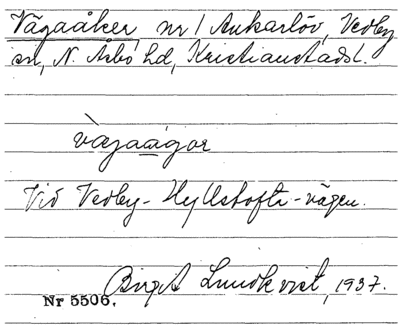 Vägaåker, nr 1 Ankarlöv, Vedby
sn, N. Åsbo hd, Kristianstads l.
vàgaågor
Vid Vedby-Hyllstofta-vägen.
Birgit Lundkvist, 1937.
Nr 5506.